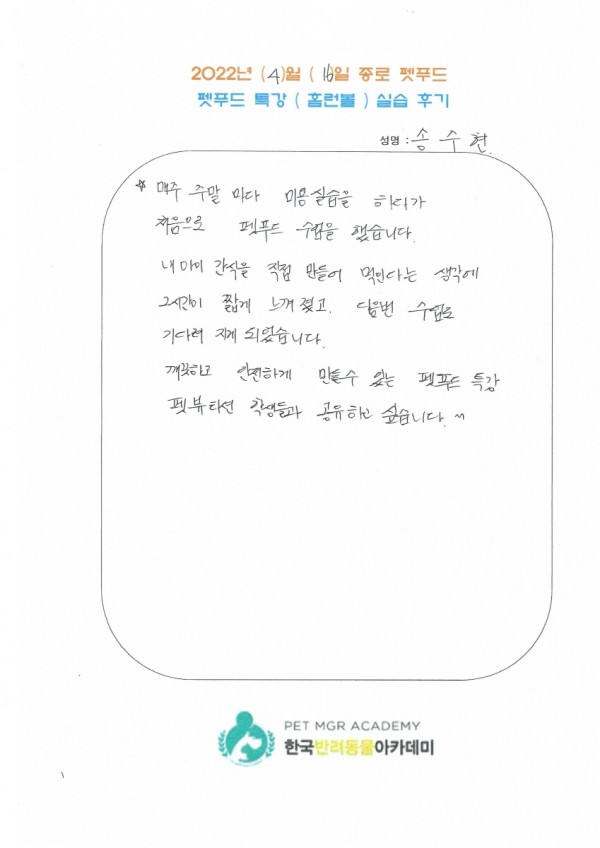 2022년 (4)월 (16)일 종로 펫푸드
펫푸드 특강 ( 홈런볼 ) 실습 후기
성명 : 송수현
☆ 매주 주말 마다 미용실습을 하다가
처음으로 펫푸드 수업을 했습니다.
내 아이 간식을 직접 만들어 먹인다는 생각에
그시간이 짧게 느껴 졌고, 다음번 수업도
기다려 지게 되었습니다.
깨끗하고 안전하게 만들수 있는 펫푸드 특강
펫뷰티션 학생들과 공유하고 싶습니다. ^^
PET MGR ACADEMY
한국반려동물아카데미